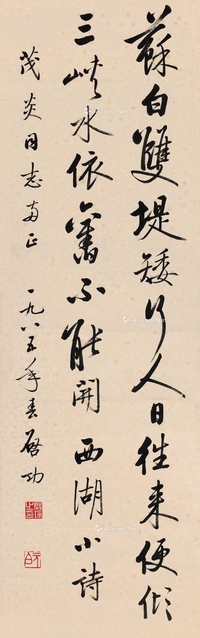 蘇白雙堤矮行人日往来便傾
三峽水依舊不能開 西湖小詩
茂炎同志両正 一九八五年春 啓功